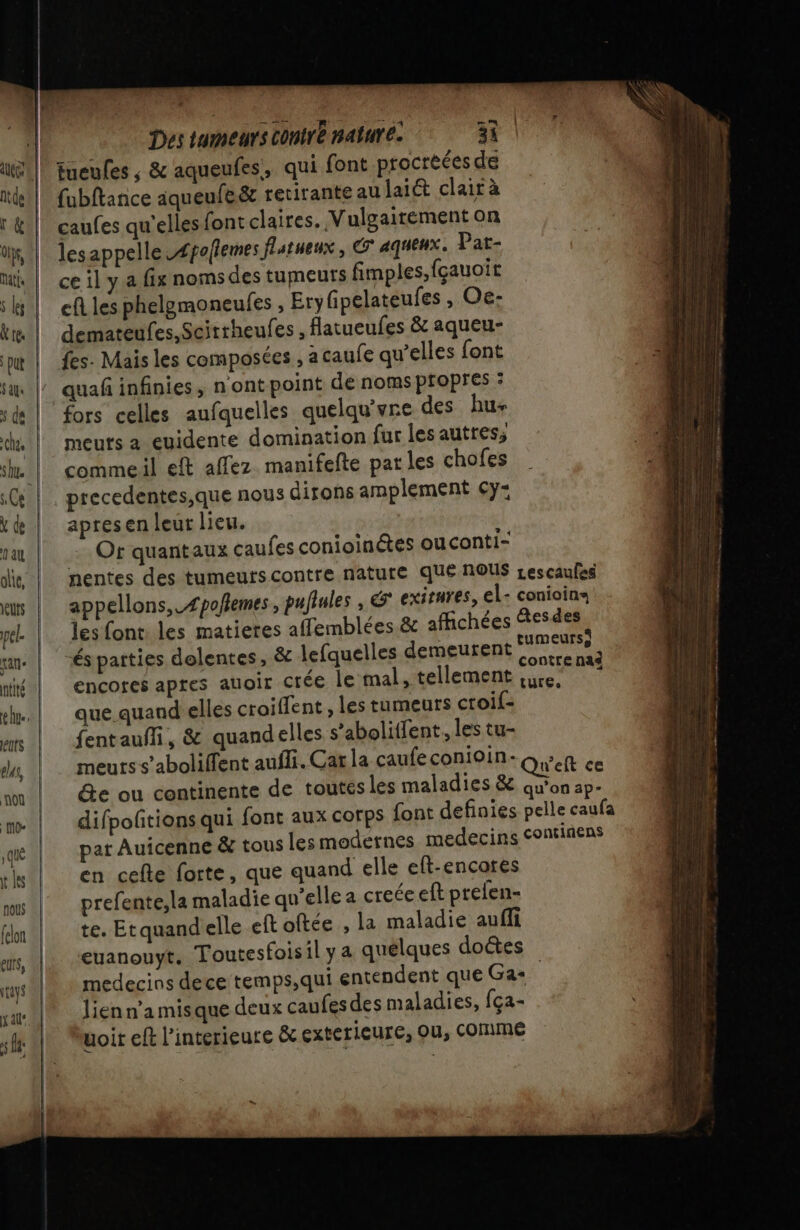 Des tumeurs contre nature. 31
tueuſes, & aqueuſes, qui ſont procreées de
ſubſtance aqueuſe & retirante au laict clair à
cauſes qu'elles ſont claires. Vulgairement on
les appelle Apoſtemes flatueux, & aqueux. Par-
ce il y a ſix noms des tumeurs ſimples, ſçauoir
eſt les phelgmoneuſes, Eryſipelateuſes, Oe-
demateuſes, Scirrheuſes, flatueuſes & aqueu-
ſes. Mais les composées, à cauſe qu'elles ſont
quaſi infinies, n'ont point de noms propres :
fors celles auſquelles quelqu'vne des hu-
meurs a euidente domination ſur les autres,
comme il eſt aſſez manifeſte par les choſes
precedentes, que nous dirons amplement cy-
apres en leur lieu.
Or quant aux cauſes conioinctes ou conti-
nentes des tumeurs contre nature que nous
appellons, Apoſtemes, puſtules, & exitures, el-
les ſont les matieres aſſemblées & affichées
és parties dolentes, & leſquelles demeurent
encores apres auoir crée le mal, tellement
que quand elles croiſſent, les tumeurs croiſ-
ſent auſſi, & quand elles s'aboliſſent, les tu-
meurs s'aboliſſent auſſi. Car la cauſe conioin-
cte ou continente de toutes les maladies &
diſpoſitions qui ſont aux corps ſont definies
par Auicenne & tous les modernes medecins
en ceſte ſorte, que quand elle eſt encores
preſente, la maladie qu'elle a creée eſt preſen-
te. Et quand elle eſt oſtée, la maladie auſſi
euanouyt. Toutesfois il y a quelques doctes
medecins de ce temps, qui entendent que Ga-
lien n'a mis que deux cauſes des maladies, ſça-
uoir eſt l'interieure & exterieure, ou, comme
Les cauſes
conioin-
ctes des
tumeurs
contre na-
ture.
Qu'eſt ce
qu'on ap-
pelle cauſa
continens